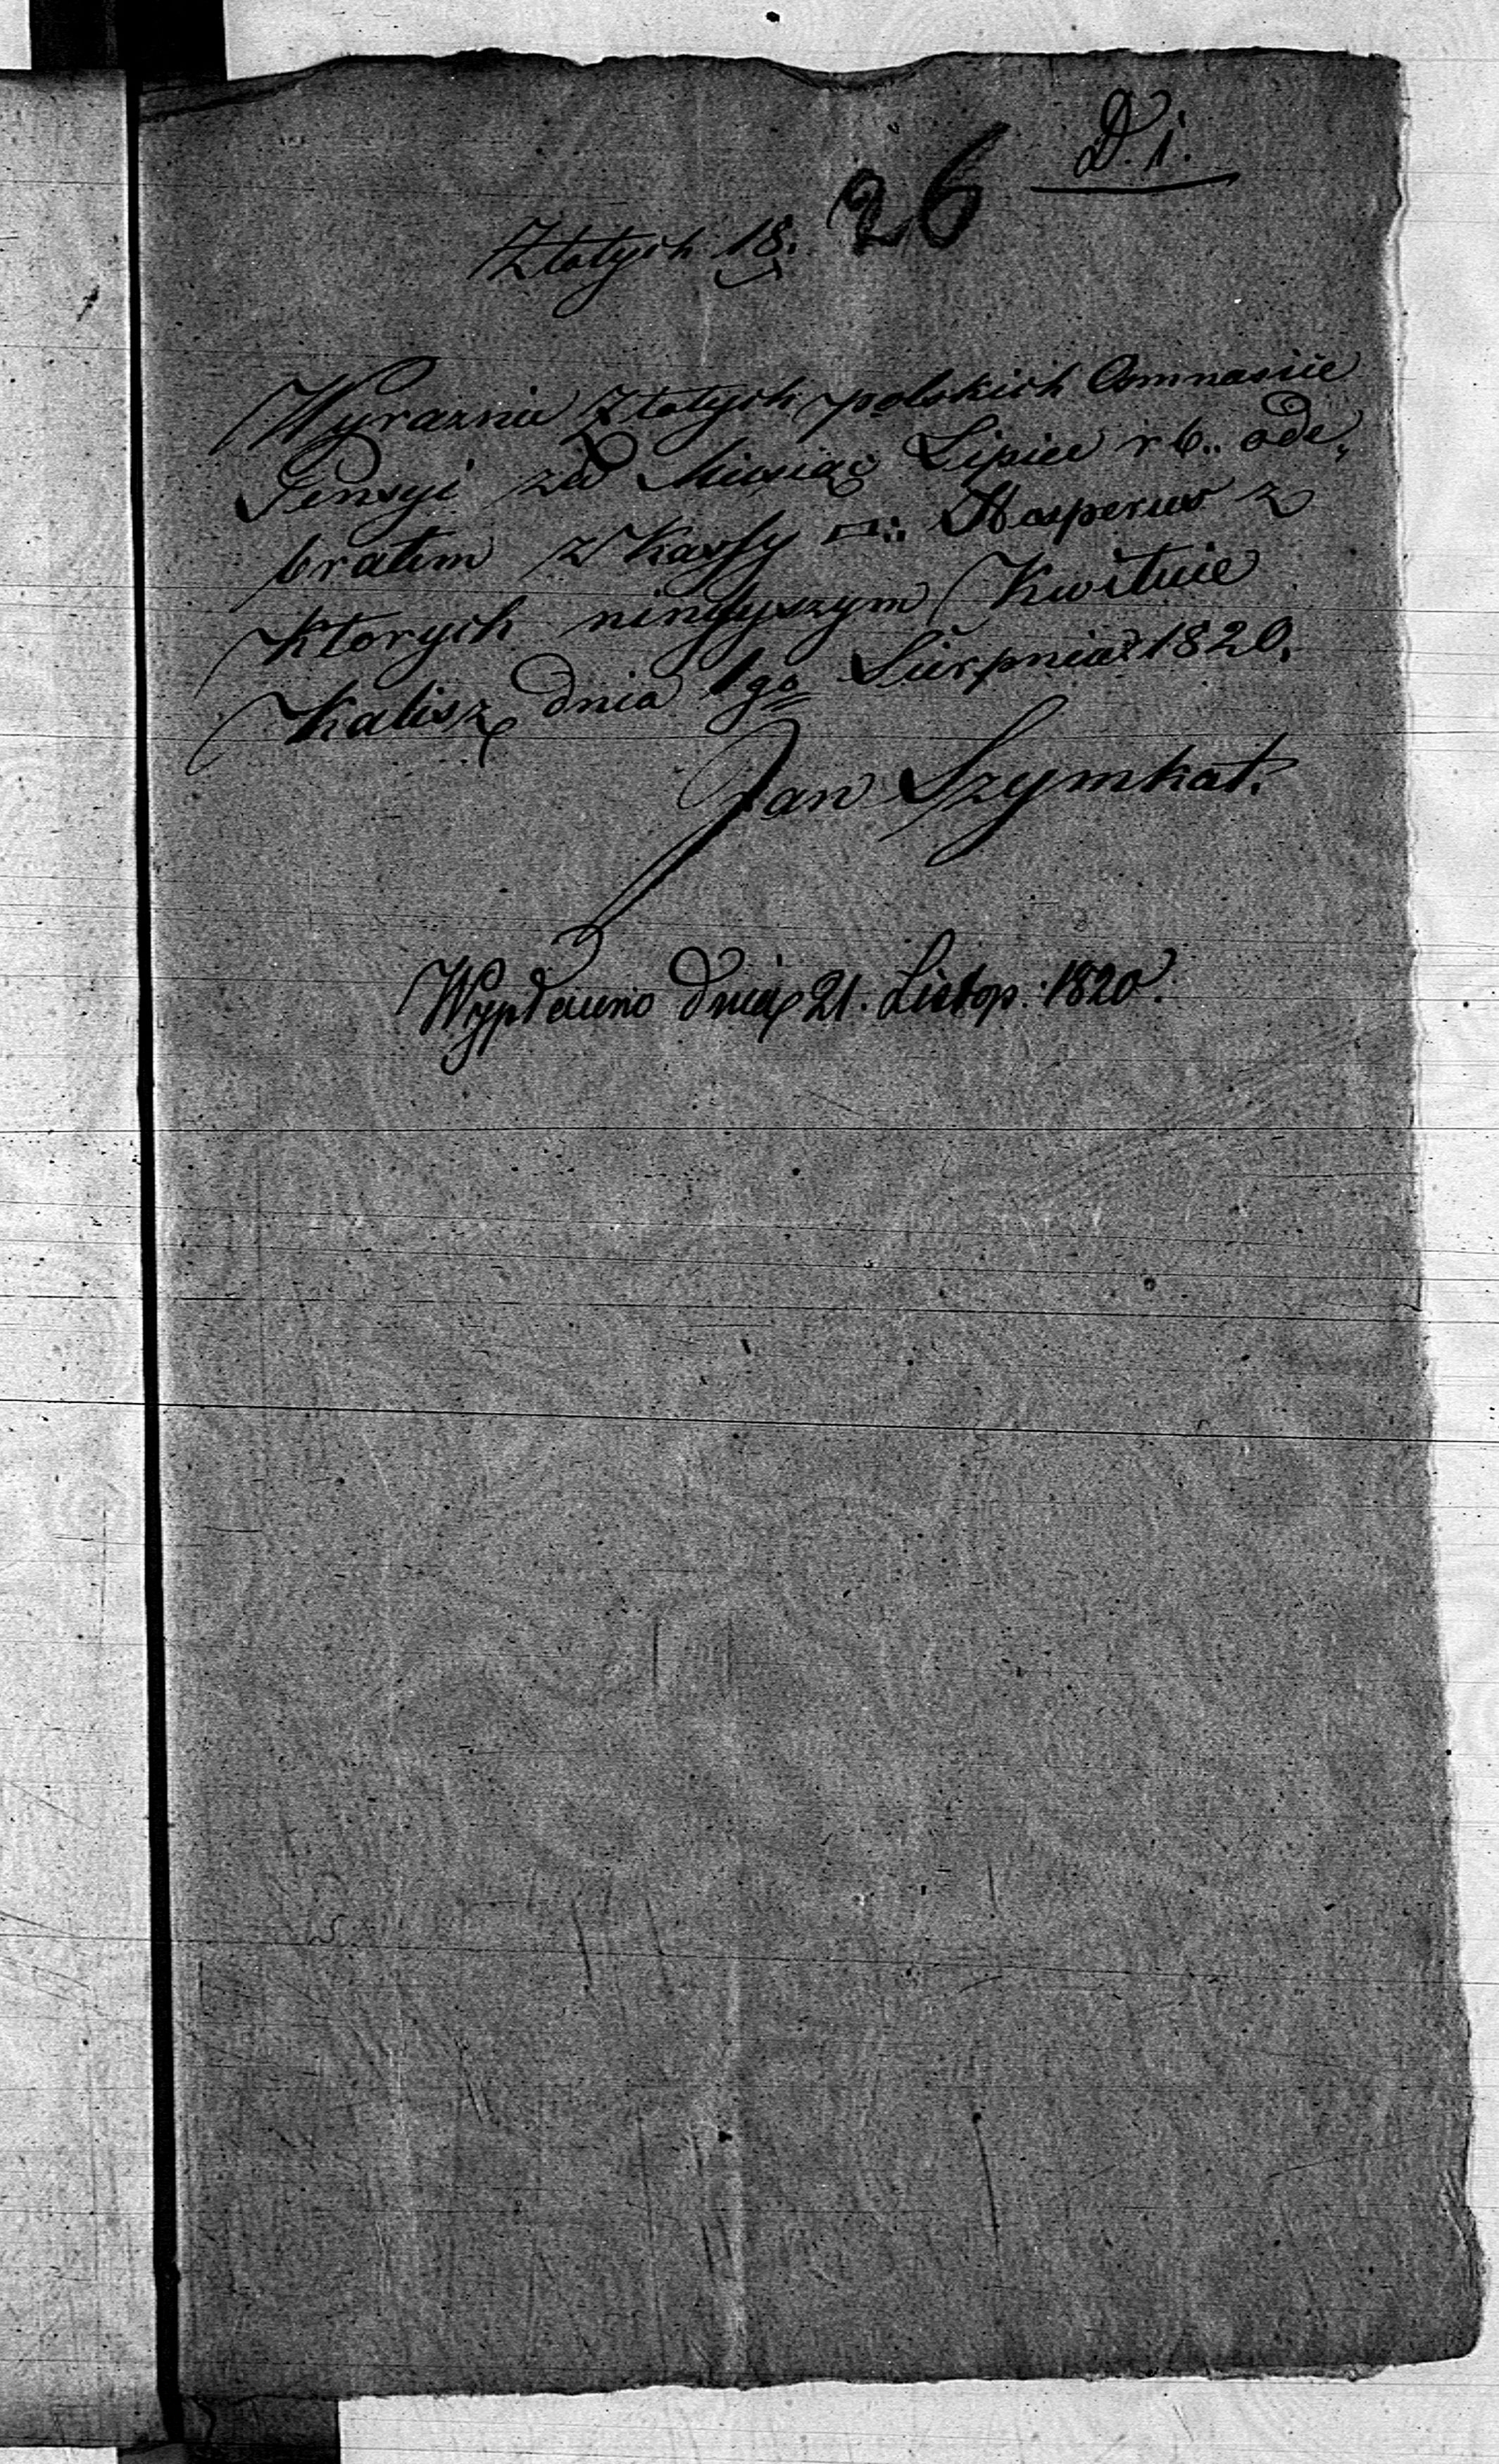 D. 1.
26
Złotych 18.
Wyraznie Złotych polskich Osmnascie
Pensyi za Miesiąc Lipiec r b.. ode,
brałem z Kassy □.: Hesperus z
Ktorych nineyszym Kwituie
Kalisz dnia 1go Sierpnia 1820.
Jan Szymkat.
Wypłacono dnia 21. Listop. 1820.